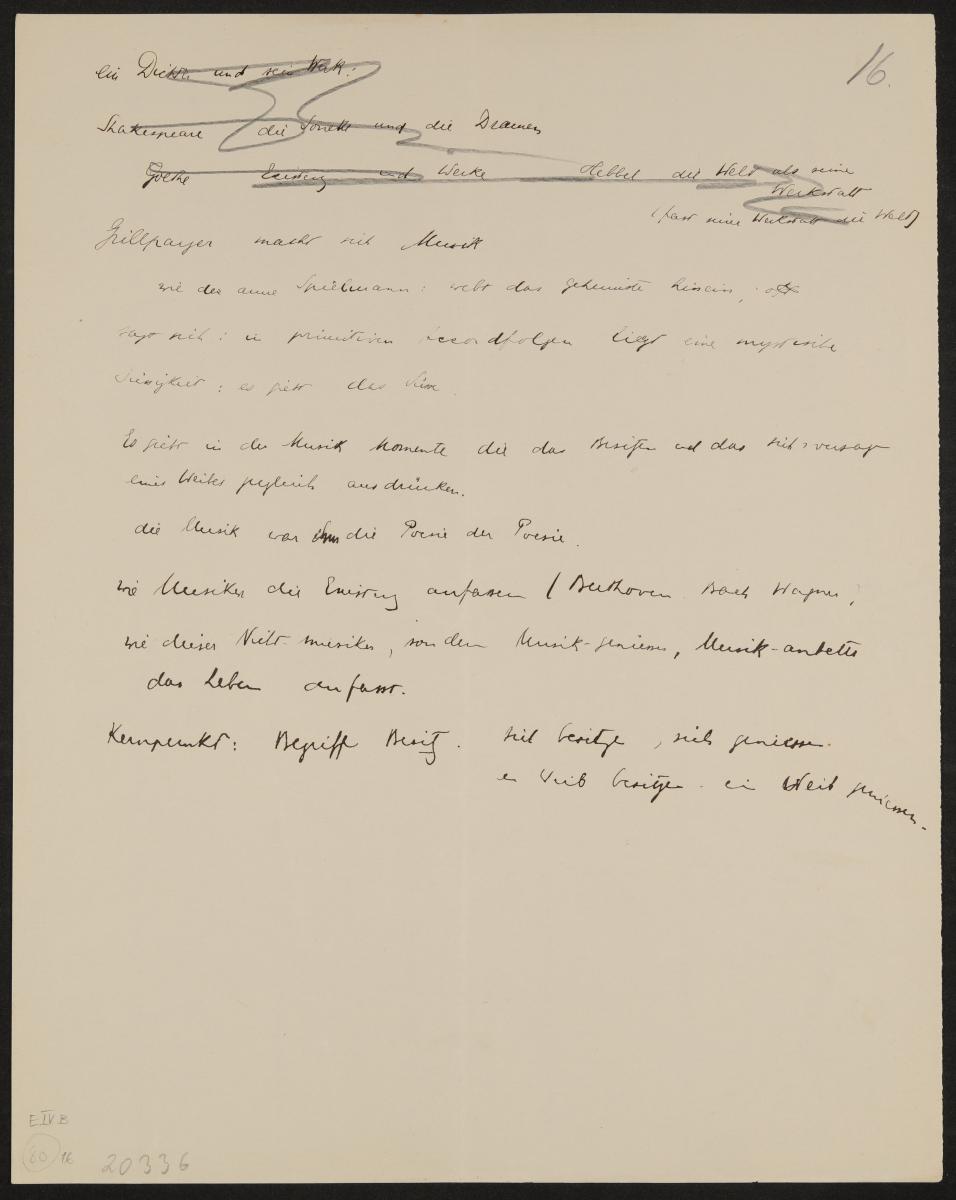 16.
ein Dichter und sein Werk:
Shakespeare die Sonette und die Dramen
Goethe Existenz und Werke Hebbel die Welt als seine
Werkstatt
(fast seine Werkstatt die Welt)
Grillparzer macht sich Musik
wie der arme Spielmann: webt das geheimste hinein,
sagt sich: in primitiven Accordfolgen liegt eine mystische
: es giebt das
Es giebt in der Musik Momente die das Besitzen und das sich-versagen
eines Weibes zugleich ausdrücken.
die Musik war ihm die Poesie der Poesie.
wie Musiker die Existenz anfassen (Beethoven Bach Wagner,
wie dieser Nicht-musiker, sondern Musik-geniesser, Musik-anbeter
das Leben anfasst.
Kernpunkt: Begriff Besitz. sich besitzen, sich geniessen.
ein Weib besitzen. ein Weib geniessen.
E IV B
60 16 20336